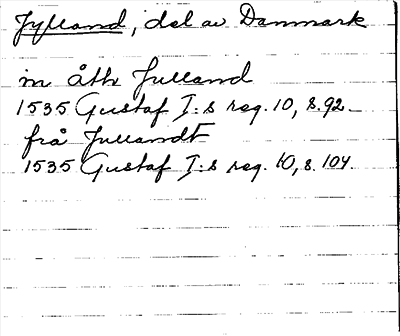 Jylland, del av Danmark
in åth Julland
1535 Gustaf I:s reg. 10, s. 92.
frå Jullandt
1535 Gustaf I:s reg. 10, s. 104.